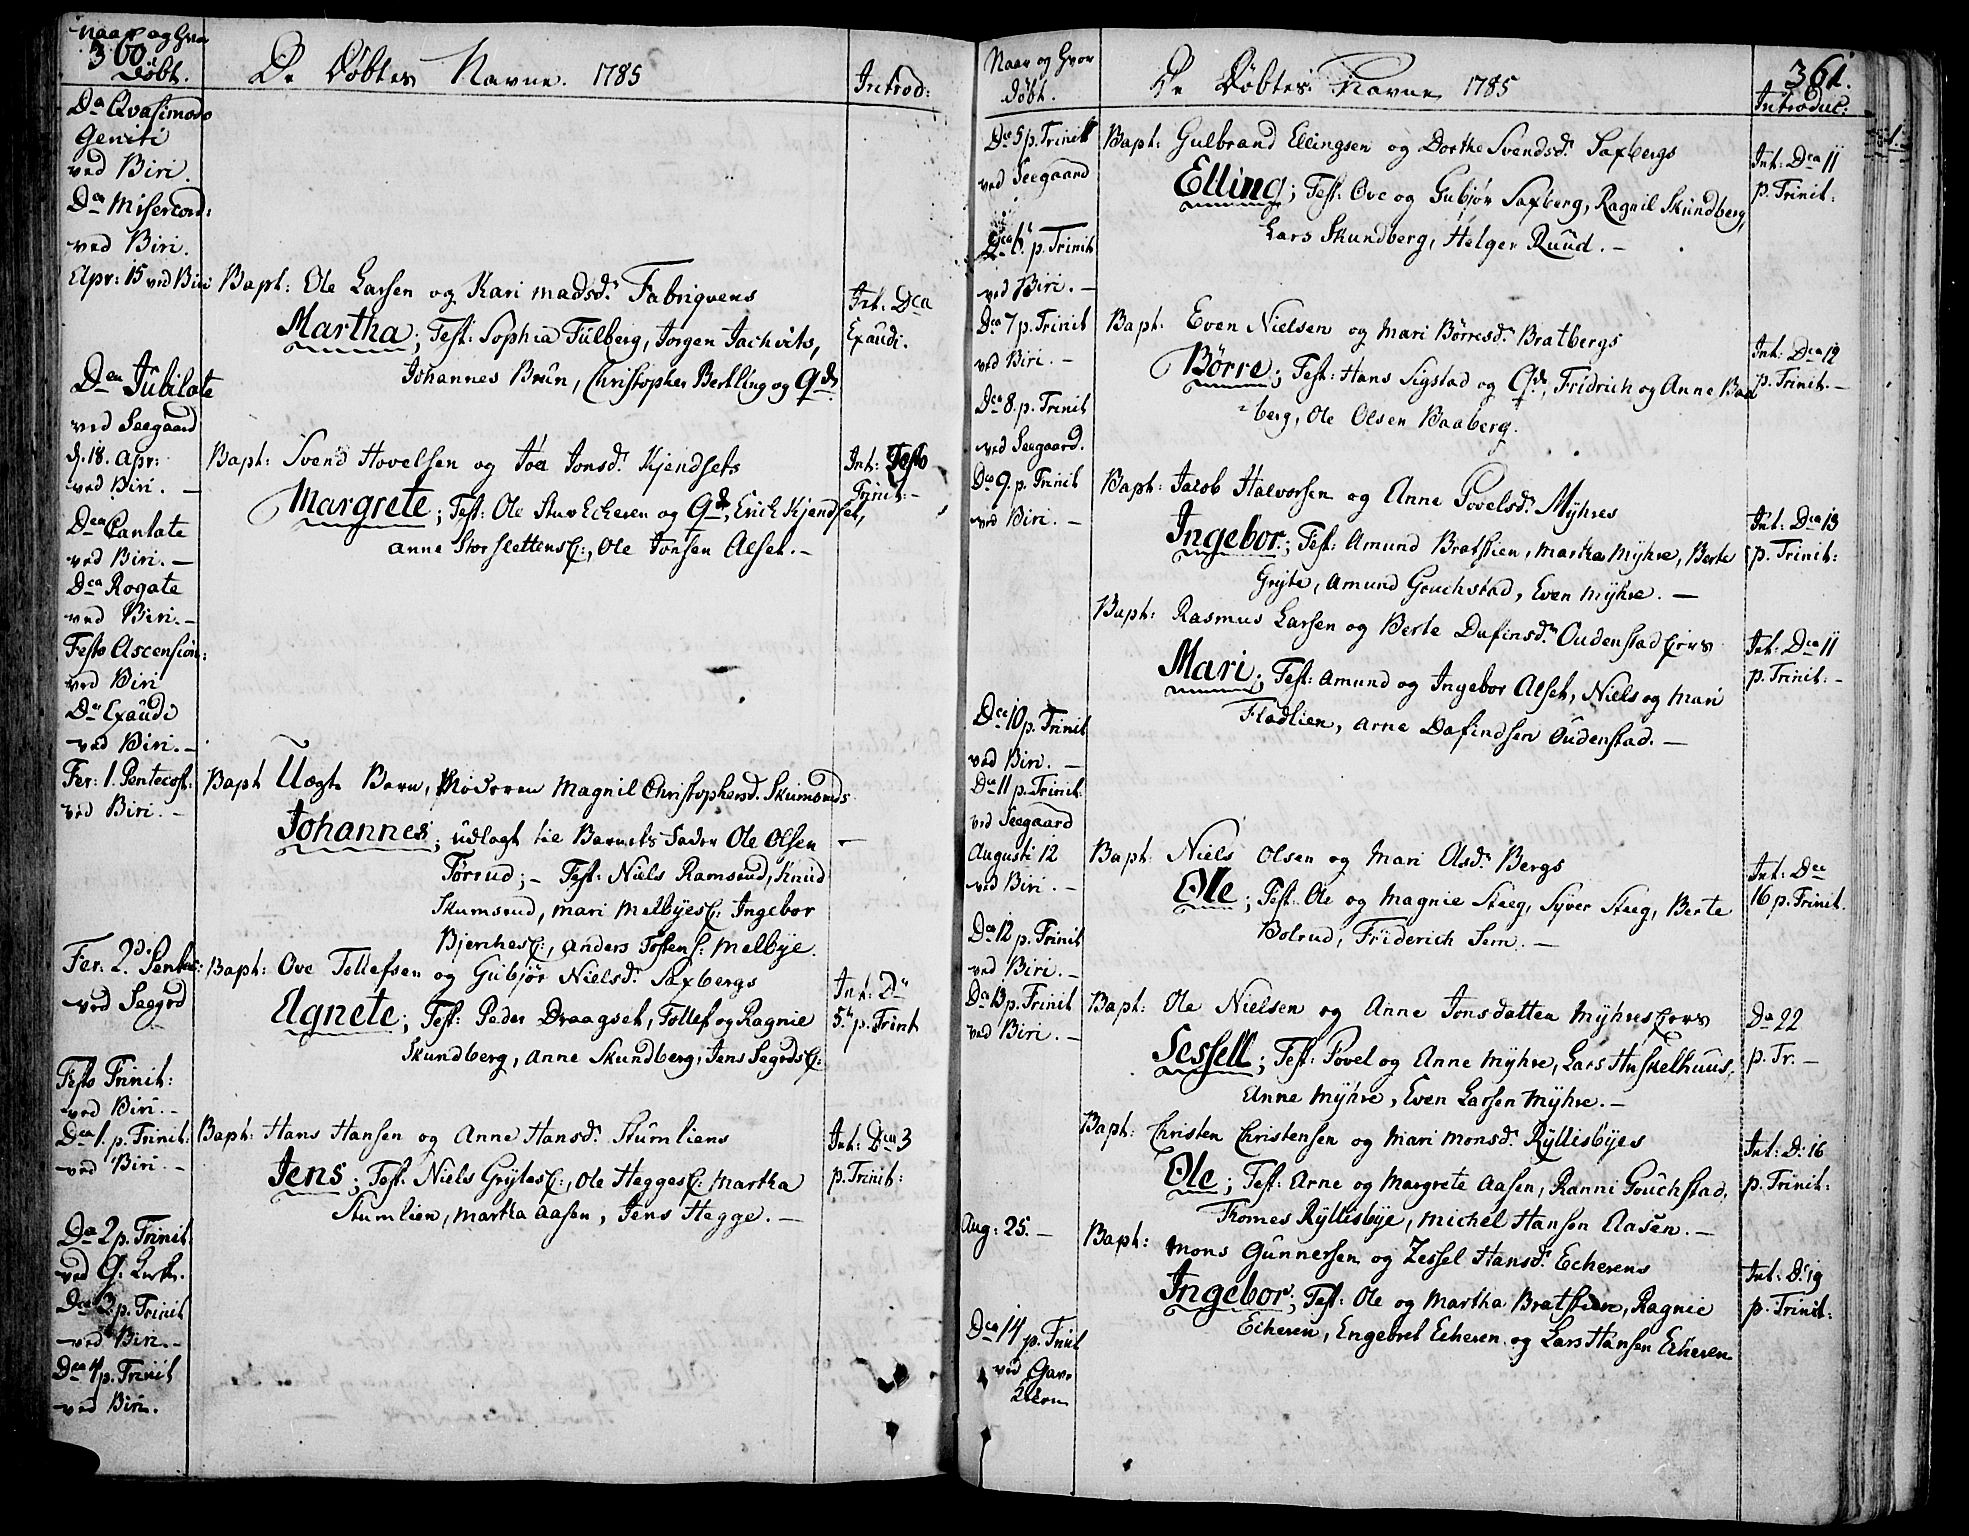 Naar og Hvor
360.
Døbt.
De Døbtes Navne. 1785
Introd:
Dca Qvasimodo
Geniti
ved Biri.
Dca Misericord:
ved Biri.
Apr: 15 ved Biri
Bapt: Ole Larsen og Kari Madsd. Fabriqvens
Int. Dca
Martha; Test: Sophia Fulberg, Jorgen Jachvits,
Exaudi.
Johannes Brun, Christopher Bertling og Qd.
Dca Jubilate
ved Seegaard
d. 18. Apr:
ved Biri. -
Bapt: Svend Hovelsen og Joa Jonsd. Kjendsets
Int: Festo
Trinit: -
Margrete; Test: Ole Stuv Echeren og Qd, Erich Kjendset,
Anne Storslettens E:, Ole Jonsen Alset. -
Dca Cantate
ved Biri. -
Dca Rogate
ved Biri. -
Festo Ascension:
ved Biri
Dca Exaudi
ved Biri. -
Fer: 1. Pentecost:
ved Biri. -
Bapt Uægte Barn, Moderen Magnil Christophersd. Skumsruds
Johannes; udlagt til Barnets Fader Ole Olsen -
Torrud; - Test: Niels Ramsrud, Knud
Skumsrud, Mari Melbyes E: Ingebor
Bjerches E:, Anders Tostens: Melbye.
Fer: 2. Pentec:
ved Seegrd
Bapt: Ove Tollefsen og Gubjør Nielsd. Saxbergs
Int: Dca
5. p. Trint
Agnete; Test: Peder Draagset, Tollef og Ragnie
Skundberg, Anne Skundberg, Jens Segrds E:
Festo Trinit:
ved Biri. -
Dca 1. p. Trinit:
ved Biri. -
Bapt: Hans Hansen og Anne Hansd. Stumliens
Int: Dca 3
p. Trinit:
Jens; Test: Niels Grytes E:, Ole Hegges E: Martha
Stumlien, Martha Aasen, Jens Hegge. -
Dca 2 p. Trinit:
ved
Dca 3 p. Trinit
ved Biri. -
Dca 4 p. Trinit
ved Biri.
Naar og Hvor
døbt.
De Døbtes Navne 1785
361.
Introduc:
Dca 5 p. Trinit
ved Seegaard
Bapt: Gulbrand Ellingsen og Dorthe Svendsd. Saxbergs
Int: Dca 11
p. Trinit:
Elling; Test: Ove og Gubjør Saxberg, Ragnil Skundberg,
Lars Skundberg, Helger Ruud. -
Dca 6. p. Trinit
ved Biri. -
Dca 7 p. Trinit
ved Biri. -
Bapt. Even Nielsen og Mari Børresd. Bratbergs
Int: Dca 12
p. Trinit. -
Børre; Test: Hans Sigstad og Qd:, Fridrich og Anne Baa
=berg, Ole Olsen Baaberg.
Dca 8. p. Trinit
ved Seegaard.
Dca 9. p. Trinit
ved Biri. -
Bapt: Jacob Halvorsen og Anne Povelsd. Myhres
Int: Dca 13
p. Trinit:
Ingebor; Test: Amund Bratslien, Martha Myhre, Berte
Gryte, Amund Gouchstad, Even Myhre. -
Bapt: Rasmus Larsen og Berte Dafinsd. Oudenstad Eiers
Int: Dca 11
p. Trinit: -
Mari; Test: Amund og Ingebor Alset, Niels og Mari
Fladlien, Arne Dafindsen Oudenstad. -
Dca 10 p. Trinit
ved Biri. -
Dca 11 p. Trinit:
ved Seegaard
Augusti 12
ved Biri. -
Bapt: Niels Olsen og Mari Olsd. Bergs
Int: Dca
16 p. Trinit.
Ole; Test: Ole og Magnie Steeg, Syver Steeg, Berte
Bolrud, Friderich Sem. -
Dca 12 p. Trinit
ved Biri. -
Dca 13 p. Trinit
ved Biri. -
Bapt: Ole Nielsen og Anne Jonsdatter Myhres Eiers
Dca 22
p. Tr. -
Sessell; Test: Povel og Anne Myhre, Lars Huskelhuus,
Anne Myhre, Even Larsen Myhre. -
Bapt: Christen Christensen og Mari Monsd. Ryllisbyes
Int: D: 16
p. Trinit:
Ole; Test: Arne og Margrete Aasen, Ranni Gouchstad,
Thomes Ryllisbye, Michel Hansen Aasen. -
Aug: 25. -
Bapt: Mons Gunnersen og Zessel Hansd. Echerens
Int: D: 19
p. Trinit:
Ingebor; Test: Ole og Martha Bratslien, Ragnie
Echeren, Engebret Echeren og Lars Hansen Echeren
Dca 14 p. Trinit
ved